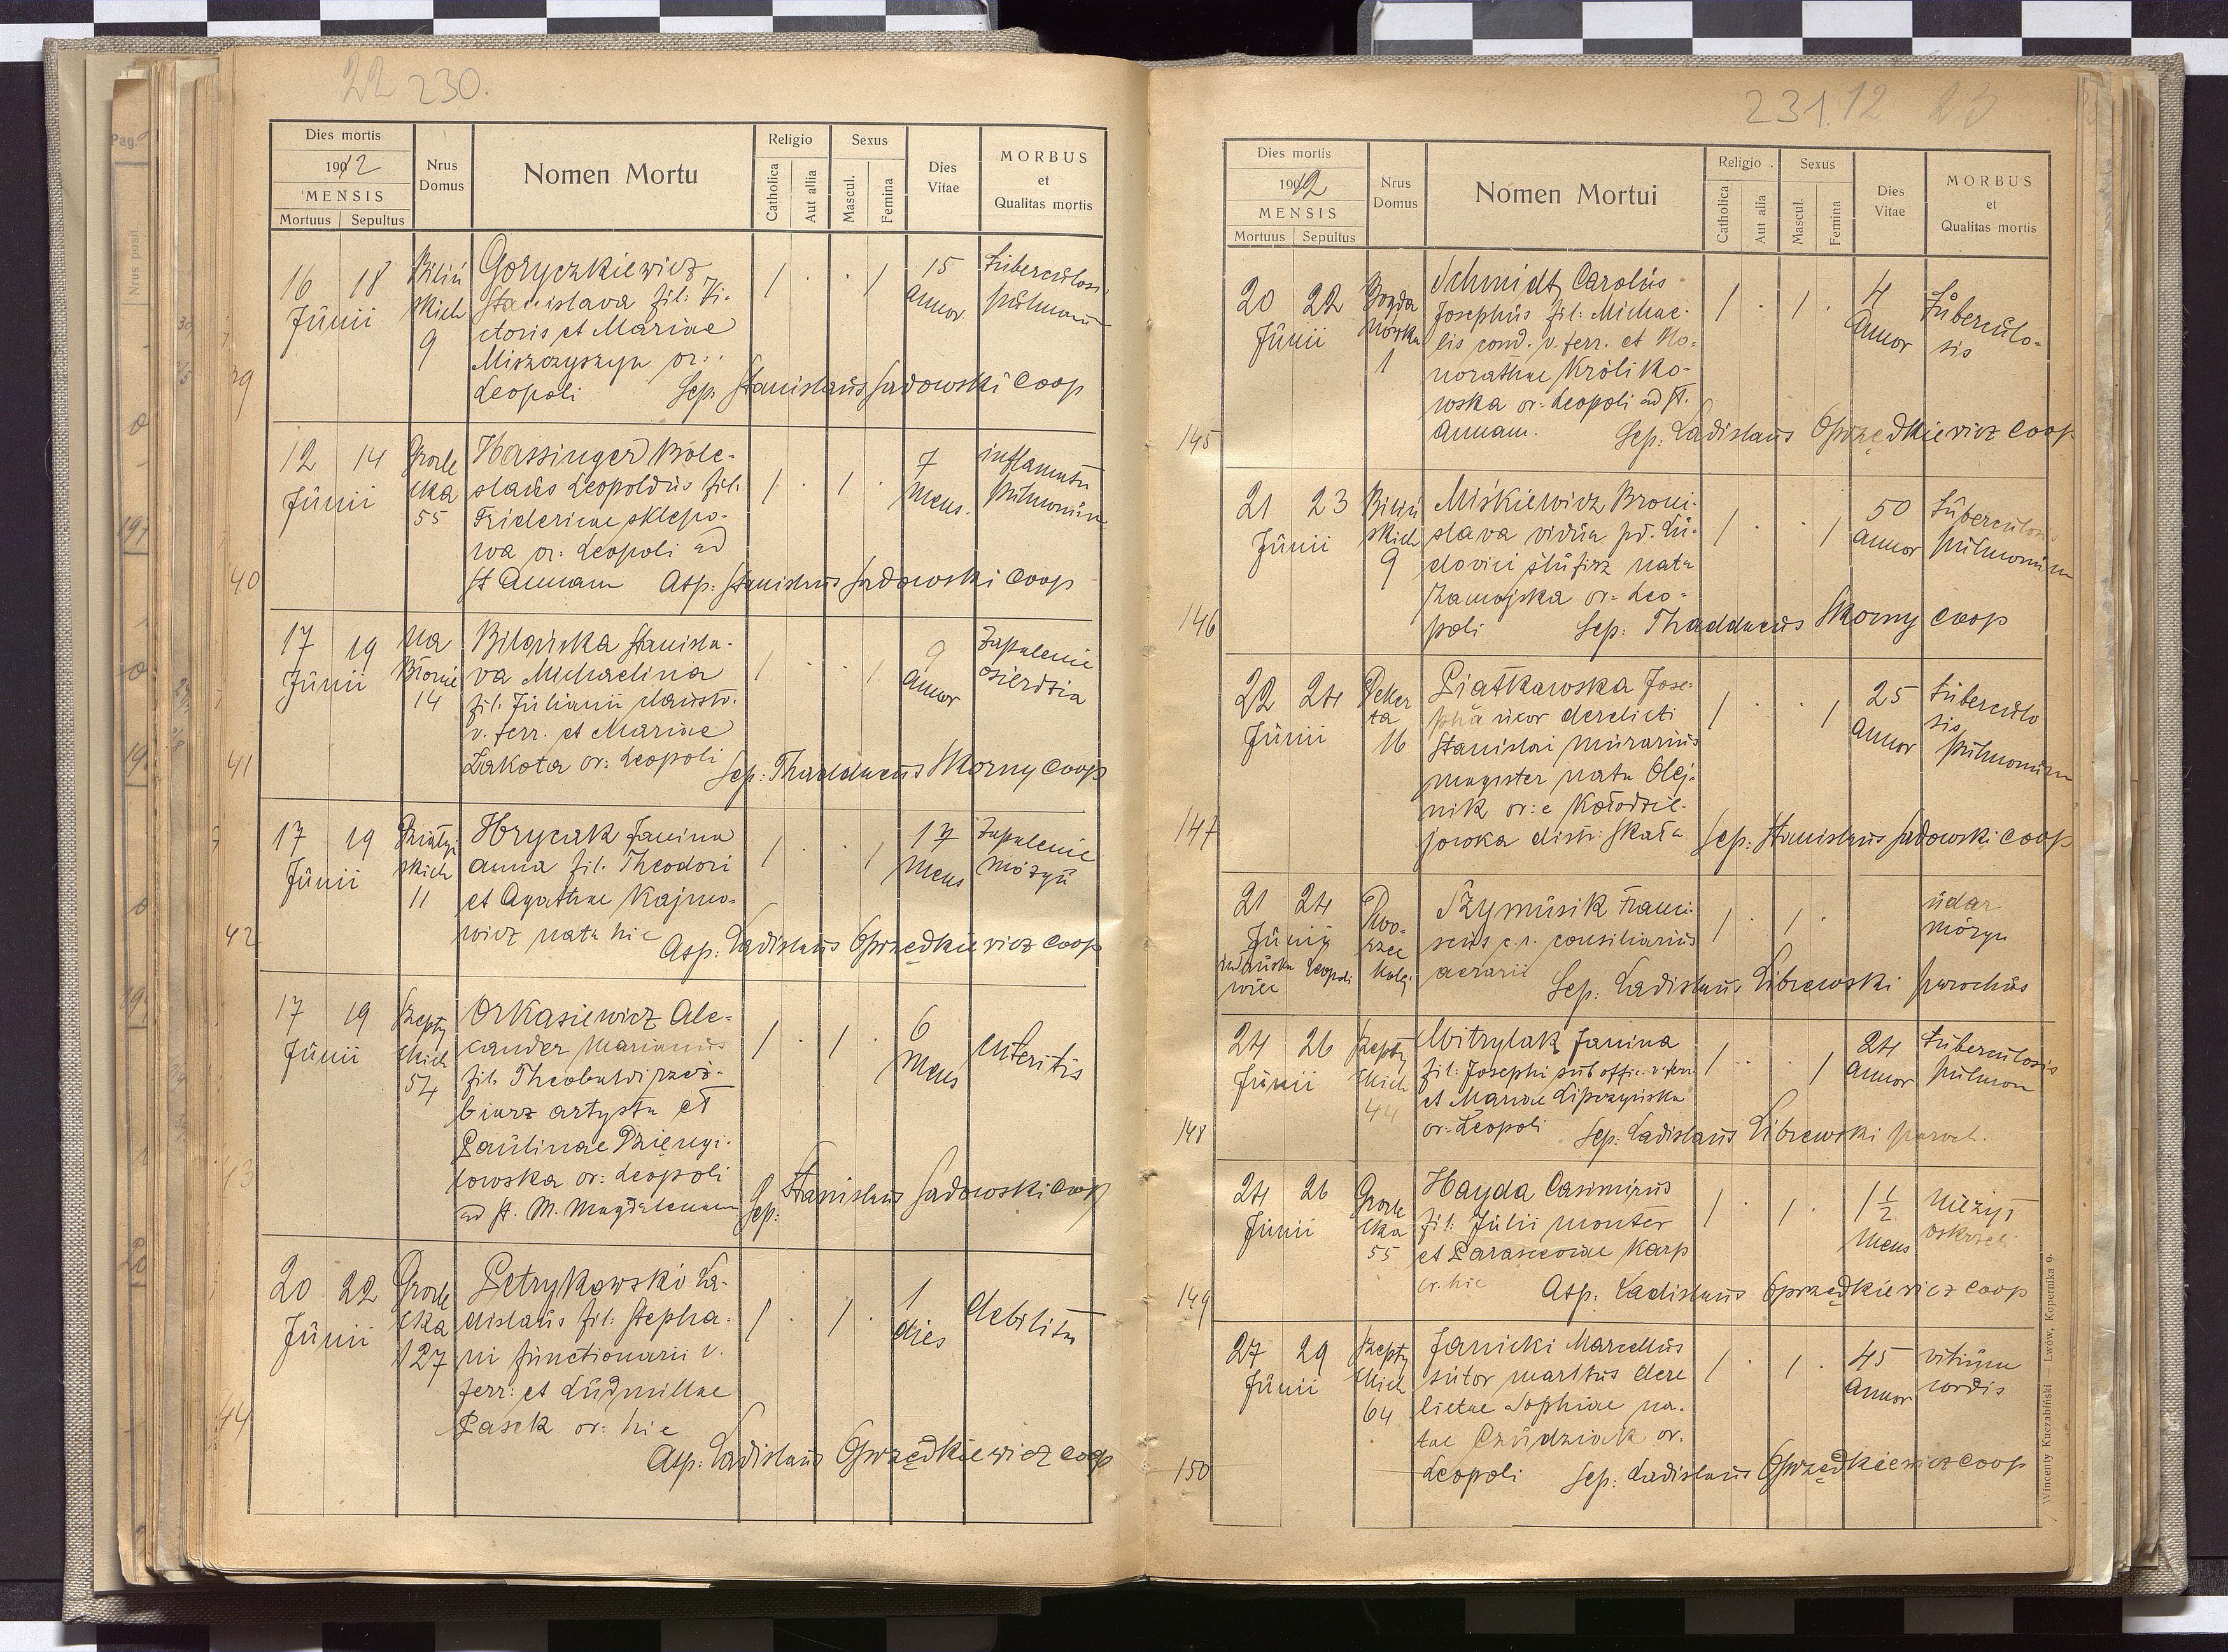 22 230.
Dies mortis
1912
MENSIS
Mortuus Sepultus
Nrus Domus
Nomen Mortu
Religio
Catholica
Aut alia
Sexus
Mascul.
Femina
Dies Vitae
MORBUS
et
Qualitas mortis
39
16 18 Junii
Biliń
skich
9
Goryczkiewicz
Stanislava fil: Vi-
ctoris et Mariae
Miszczyszyn or:
Leopoli Sep. Stanislaus Sadowski coop
1 . . 1
15
annor.
tuberculosis
pulmonum
40
12 14 Junii
Grode
cka
55
Hassinger Bole-
slaus Leopoldus fil.
Fridericae sklepo-
wa or. Leopoli ad
St Annam Asp: Stanislaus Sadowski coop
1 . 1 .
7
mens.
inflamatio
pulmonum
41
17 19 Junii
Na
Błonie
14
Bilańska Stanisla-
va Michaelina
fil. Juliani
v. ferr. et Mariae
Łakota or: Leopoli Sep: Thaddaeus Skorny coop
1 . . 1
9
annor
Zapalenie
osierdzia
42
17 19 Junii
skich
11
Hrycak Janina
Anna fil. Theodori
et Agathae Kajmo-
wicz nata hic Asp: Ladislaus Oprzędkiewicz coop
1 . . 1
17
mens
Zapalenie
mózgu
43
17 19 Junii
Szepty
ckich
54
Orkasiewicz Ale-
xander Marianus
fil. Theobaldi rzeź-
biarz artysta et
Paulinae Dzięngi-
lowska or: Leopoli
ad St. M. Magdalenam Sep: Stanislaus Sadowski coop
1 . 1 .
6
mens
enteritis
44
20 22 Junii
Grode
cka
127
Petrykowski La-
dislaus fil: Stepha-
ni functionarii v.
ferr: et Ludmillae
Pasek or: hic
Asp: Ladislaus Oprzędkiewicz coop
1 . 1 .
1
dies
debilitas
231. 12 23
Dies mortis
1912
MENSIS
Mortuus Sepultus
Nrus Domus
Nomen Mortui
Religio
Catholica
Aut alia
Sexus
Mascul.
Femina
Dies Vitae
MORBUS
et
Qualitas mortis
145
20 22 Junii
Bogda
nówka
1
Schmidt Carolus
Josephus fil: Michae-
lis cond. v. ferr. et Ho-
norathae Króliko-
wska or: Leopoli ad St.
Annam. Sep: Ladislaus Oprzędkiewicz coop
1 . 1 .
4
annor
Tuberculo-
sis
146
21 23 Junii
Biliń
skich
9
Miśkiewicz Broni-
slava vidua pd. Lu-
dovici ślusarz nata
Zamojska or: Leo-
poli Sep: Thaddaeus Skorny coop
1 . . 1
50
annor
tuberculosis
pulmonum
147
22 24 Junii
Deker
ta
16
Piątkowska Jose-
pha uxor derelicti
Stanislai murarius
magister nata Olej-
nik or: e Kołodzie-
jowka distr: Skała Sep: Stanislaus Sadowski coop
1 . . 1
25
annor
tuberculo
sis
pulmonum
21 24 Junii
Leopoli
Dwo-
rzec
kolej
Szymusik Franci-
scus c.r. consiliarius
aerarii Sep. Ladislaus Librewski parochus
1 . 1 .
udar
mózgu
148
24 26 Junii
Szepty
ckich
44
Mitrylak Janina
fil: Josephi sub offic. v. ferr.
et Mariae Lipczyńska
or: Leopoli Sep: Ladislaus Librewski paroch.
1 . . 1
24
annor
tuberculosis
pulmon
149
24 26 Junii
Grode
cka
55
Hayda Casimirus
fil: Julii monter
et Parasceviae Karp
or. hic Asp: Ladislaus Oprzędkiewicz coop
1 . 1 .
1 1/2
mens
nieżyt
oskrzeli
150
27 29 Junii
Szepty
ckich
64
Janicki Marcellus
sutor maritus dere
lictae Sophiae na-
tae Czudziak or.
Leopoli Sep: Ladislaus Oprzędkiewicz coop
1 . 1 .
45
annor
vitium
cordis
Wincenty Kuczabiński Lwów, Kopernika 9.
Pag.
Nrus posit.